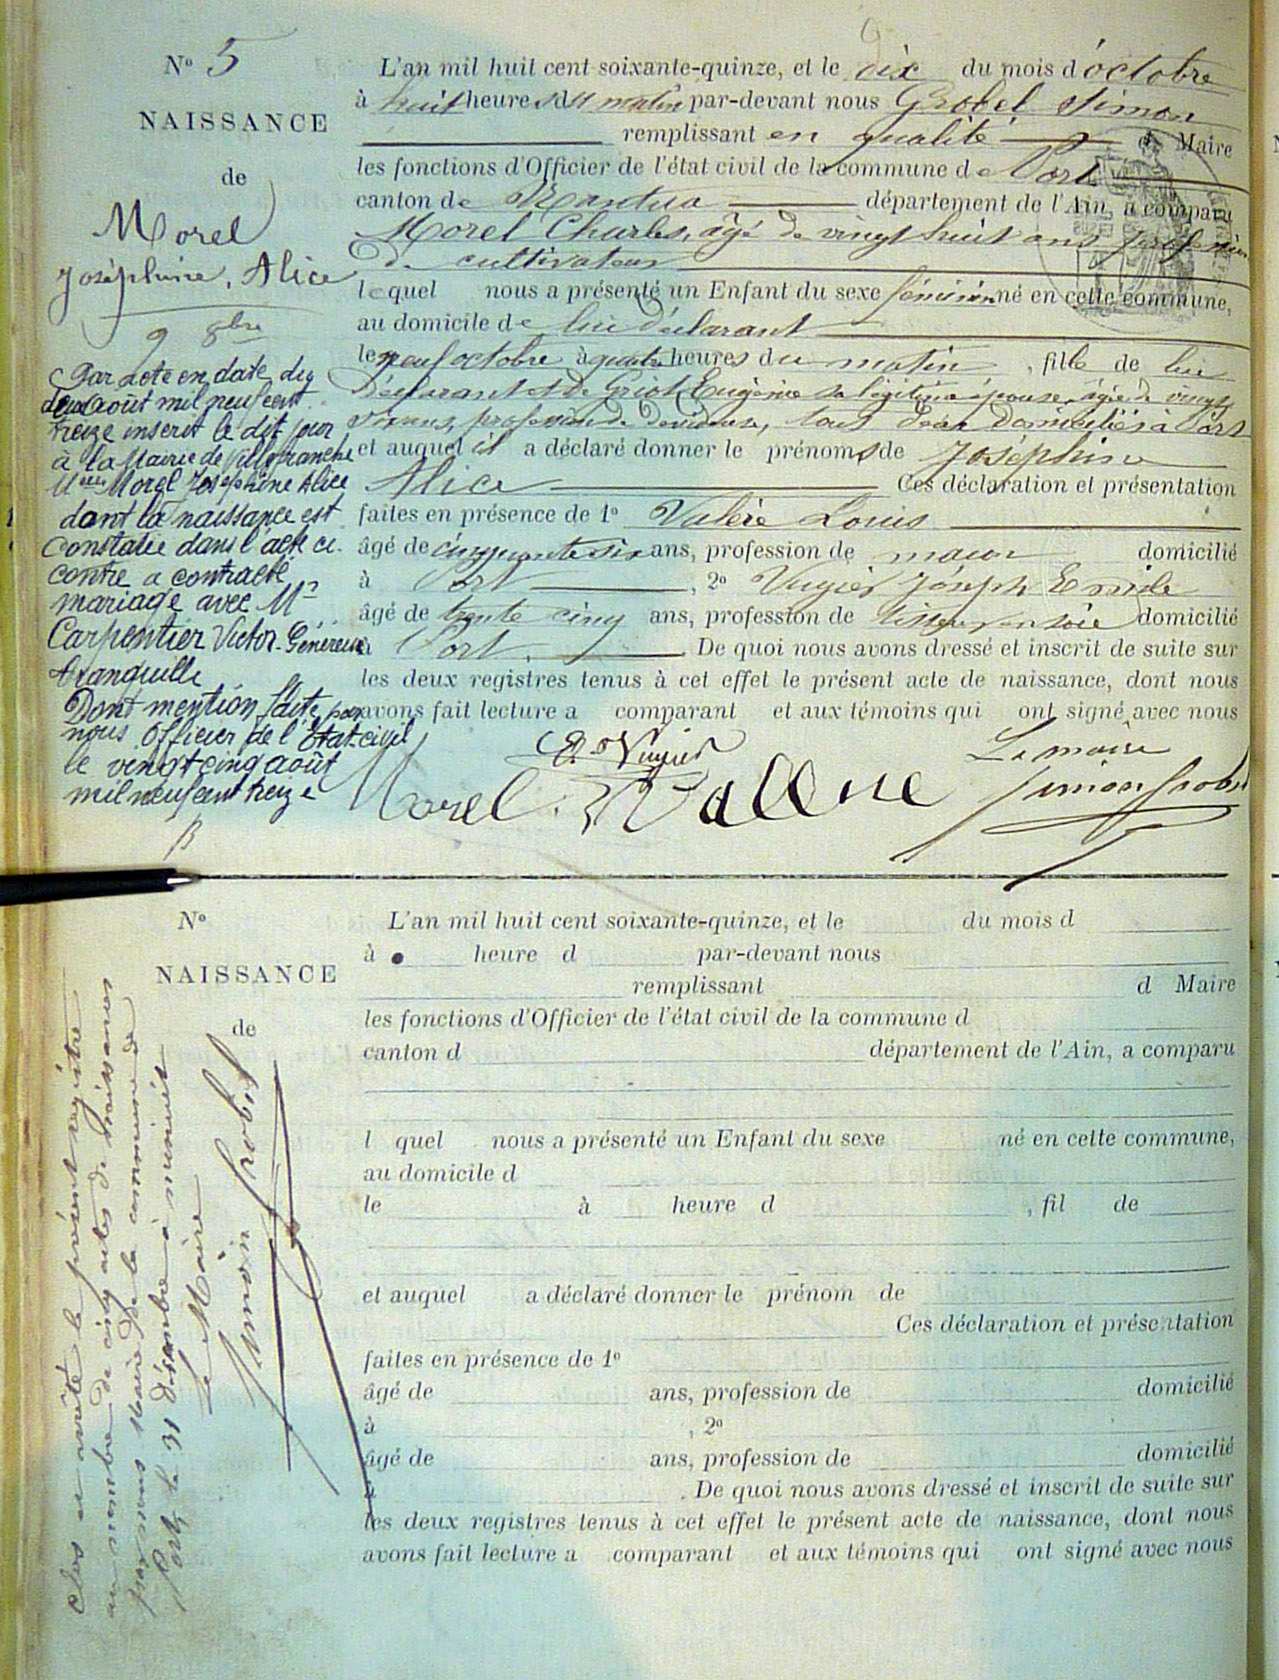 N° 5
NAISSANCE
de
Morel
Joséphine, Alice
9 8bre
Par acte en date du
deux août mil neuf cent
treize inscrit le dit jour
à la Mairie de Villefranche
Melle Morel Joséphine Alice
dont la naissance est
constatée dans l'acte ci-
contre a contracté
mariage avec Mr
Carpentier Victor-Généreux
Tranquille
Dont mention faite par
nous Officier de l'État-civil
le vingt cinq août
mil neuf cent treize
L'an mil huit cent soixante-quinze, et le dix du mois d'octobre
à huit heures du matin par-devant nous Grobel Simon
remplissant en qualité de Maire
les fonctions d'Officier de l'état civil de la commune de Port
canton de Nantua département de l'Ain, a comparu
Morel Charles, âgé de vingt huit ans profession
de cultivateur
lequel nous a présenté un Enfant du sexe féminin né en cette commune,
au domicile de lui déclarant
le neuf octobre à quatre heures du matin, fille de lui
déclarant et de Griot Eugénie sa légitime épouse, âgée de vingt
ans, profession de dévideuse, tous deux domiciliés à Port
et auquel il a déclaré donner le prénoms de Joséphine
Alice Ces déclaration et présentation
faites en présence de 1° Valère Louis
âgé de cinquante six ans, profession de maçon domicilié
à Port, 2° Vugier Joseph Emile
âgé de trente cinq ans, profession de tisseur en soie domicilié
à Port. De quoi nous avons dressé et inscrit de suite sur
les deux registres tenus à cet effet le présent acte de naissance, dont nous
avons fait lecture a comparant et aux témoins qui ont signé avec nous
Le maire
Morel Simon Grobel
N°
NAISSANCE
de
L'an mil huit cent soixante-quinze, et le du mois d
à heure d par-devant nous
remplissant d Maire
les fonctions d'Officier de l'état civil de la commune d
canton d département de l'Ain, a comparu
l quel nous a présenté un Enfant du sexe né en cette commune,
au domicile d
le à heure d , fil de
et auquel a déclaré donner le prénom de
Ces déclaration et présentation
faites en présence de 1°
âgé de ans, profession de domicilié
à , 2°
âgé de ans, profession de domicilié
à . De quoi nous avons dressé et inscrit de suite sur
les deux registres tenus à cet effet le présent acte de naissance, dont nous
avons fait lecture a comparant et aux témoins qui ont signé avec nous
Clos et arrêté le présent registre
au nombre de cinq actes de naissances
par nous Maire de la commune de
Port, le 31 décembre à minuit
Le Maire
Simon Grobel